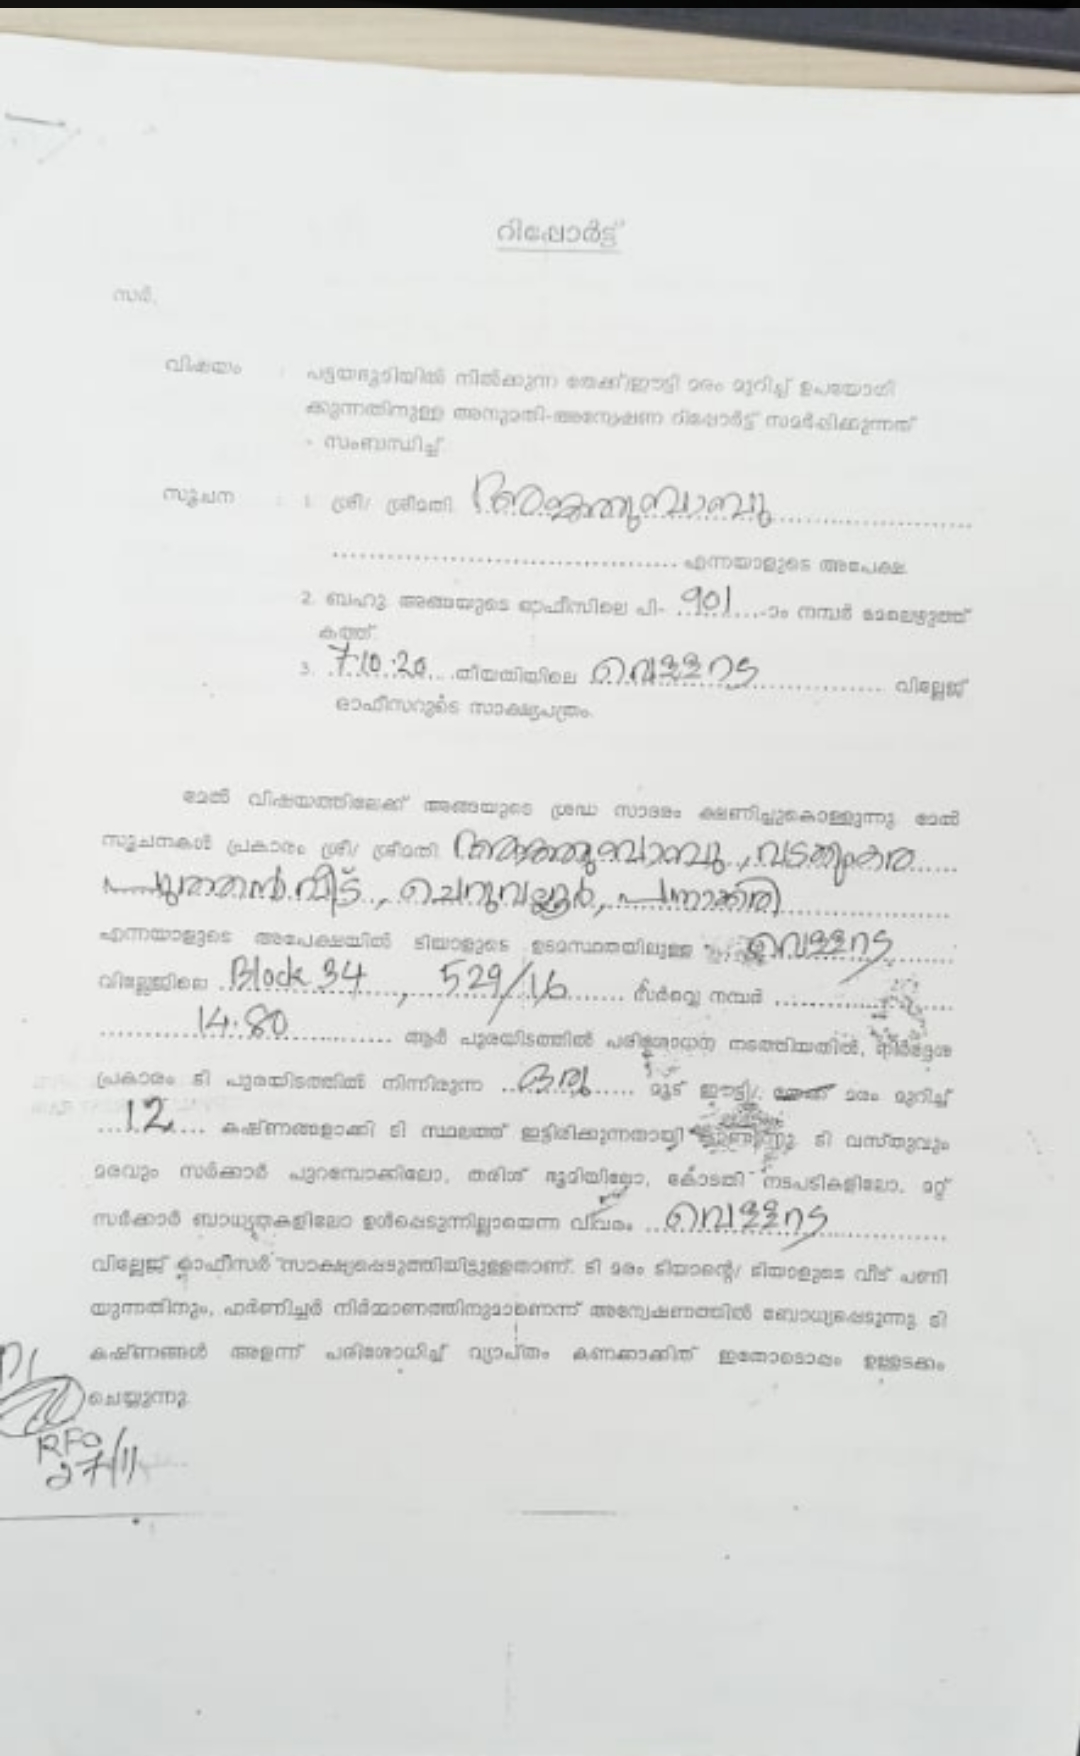 റിപ്പോർട്ട്
സർ,
വിഷയം : പട്ടയഭൂമിയിൽ നിൽക്കുന്ന തേക്ക്/ഈട്ടി മരം മുറിച്ച് ഉപയോഗി
ക്കുന്നതിനുള്ള അനുമതി-അന്വേഷണ റിപ്പോർട്ട് സമർപ്പിക്കുന്നത്
- സംബന്ധിച്ച്.
സൂചന : 1. ശ്രീ/ ശ്രീമതി
എന്നയാളുടെ അപേക്ഷ.
2. ബഹു. അങ്ങയുടെ ഓഫീസിലെ പി- 901 -ാം നമ്പർ മേലെഴുത്ത്
കത്ത്.
3. 7.10.20 തീയതിയിലെ വെള്ളറട വില്ലേജ്
ഓഫീസറുടെ സാക്ഷ്യപത്രം.
മേൽ വിഷയത്തിലേക്ക് അങ്ങയുടെ ശ്രദ്ധ സാദരം ക്ഷണിച്ചുകൊള്ളുന്നു. മേൽ
സൂചനകൾ പ്രകാരം ശ്രീ/ ശ്രീമതി
പുത്തൻ വീട്,
എന്നയാളുടെ അപേക്ഷയിൽ ടിയാളുടെ ഉടമസ്ഥതയിലുള്ള വെള്ളറട
വില്ലേജിലെ Block 34, 529/16 സർവ്വെ നമ്പർ
14.80 ആർ പുരയിടത്തിൽ പരിശോധന നടത്തിയതിൽ, നിർദ്ദേശ
പ്രകാരം ടി പുരയിടത്തിൽ നിന്നിരുന്ന ഒരു മൂട് ഈട്ടി/ തേക്ക് മരം മുറിച്ച്
12 കഷ്ണങ്ങളാക്കി ടി സ്ഥലത്ത് ഇട്ടിരിക്കുന്നതായി കാണുന്നു. ടി വസ്തുവും
മരവും സർക്കാർ പുറമ്പോക്കിലോ, തരിശ് ഭൂമിയിലോ, കോടതി നടപടികളിലോ, മറ്റ്
സർക്കാർ ബാധ്യതകളിലോ ഉൾപ്പെടുന്നില്ലായെന്ന വിവരം വെള്ളറട
വില്ലേജ് ഓഫീസർ സാക്ഷ്യപ്പെടുത്തിയിട്ടുള്ളതാണ്. ടി മരം ടിയാന്റെ/ ടിയാളുടെ വീട് പണി
യുന്നതിനും, ഫർണിച്ചർ നിർമ്മാണത്തിനുമാണെന്ന് അന്വേഷണത്തിൽ ബോധ്യപ്പെടുന്നു. ടി
കഷ്ണങ്ങൾ അളന്ന് പരിശോധിച്ച് വ്യാപ്തം കണക്കാക്കിത് ഇതോടൊപ്പം ഉള്ളടക്കം
ചെയ്യുന്നു.
RFO
27/11